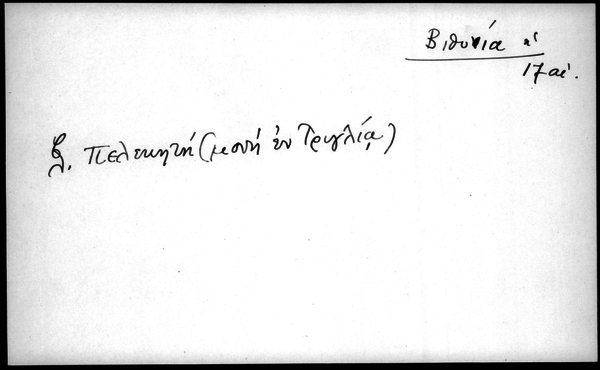 Βιθυνία
17 αἰ.
Πελεκητή (μονή ἐν Τριγλίᾳ)